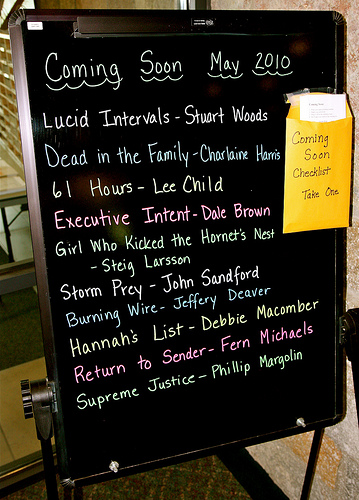 Coming Soon May 2010
Lucid Intervals - Stuart Woods
Dead in the Family - Charlaine Harris
61 Hours - Lee Child
Executive Intent - Dale Brown
Girl Who Kicked the Hornet's Nest
- Steig Larsson
Storm Prey - John Sandford
Burning Wire - Jeffery Deaver
Hannah's List - Debbie Macomber
Return to Sender - Fern Michaels
Supreme Justice - Phillip Margolin
Coming
Soon
Checklist
Take One